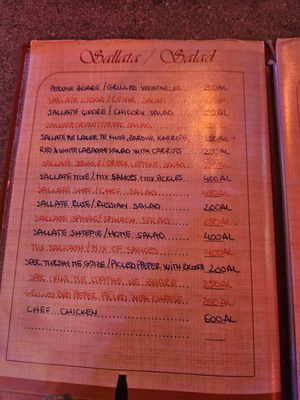 Sallata / Salad
PERIME ZGARE / GRILLED VEGETABLES 250AL
SALLATE CEZAR / CESAR SALAD
SALLATE GIKORE / CHICORY SALAD 250AL
SALLATE GREKE / GREEK SALAD
SALLATE ME LAKER TE KUQE, BARDHE, KARROTA 250AL
RED & WHITE CABBAGE SALAD WITH CARROTS 250AL
SALLATE JESHILE / GREEN LETTUCE SALAD 250AL
SALLATE MIKS / MIX SAUCES, MIX PICKLES 400AL
SALLATE SHEF / CHEF SALAD 450AL
SALLATE RUSE / RUSSIAN SALAD 200AL
SALLATE SPINAQ / SPINACH SALAD 250AL
SALLATE SHTEPIE / HOME SALAD 400AL
MIX SALCASH / MIX OF SAUCES 400AL
SPEC TURSHI ME GJIZE / PICLED PEPER WITH RICOTTA 200AL
SPEC I KUQ ME ZGARE 250AL
GRILLED RED PEPER FILLED WITH CHEESE 250AL
CHEF CHICKEN 600AL